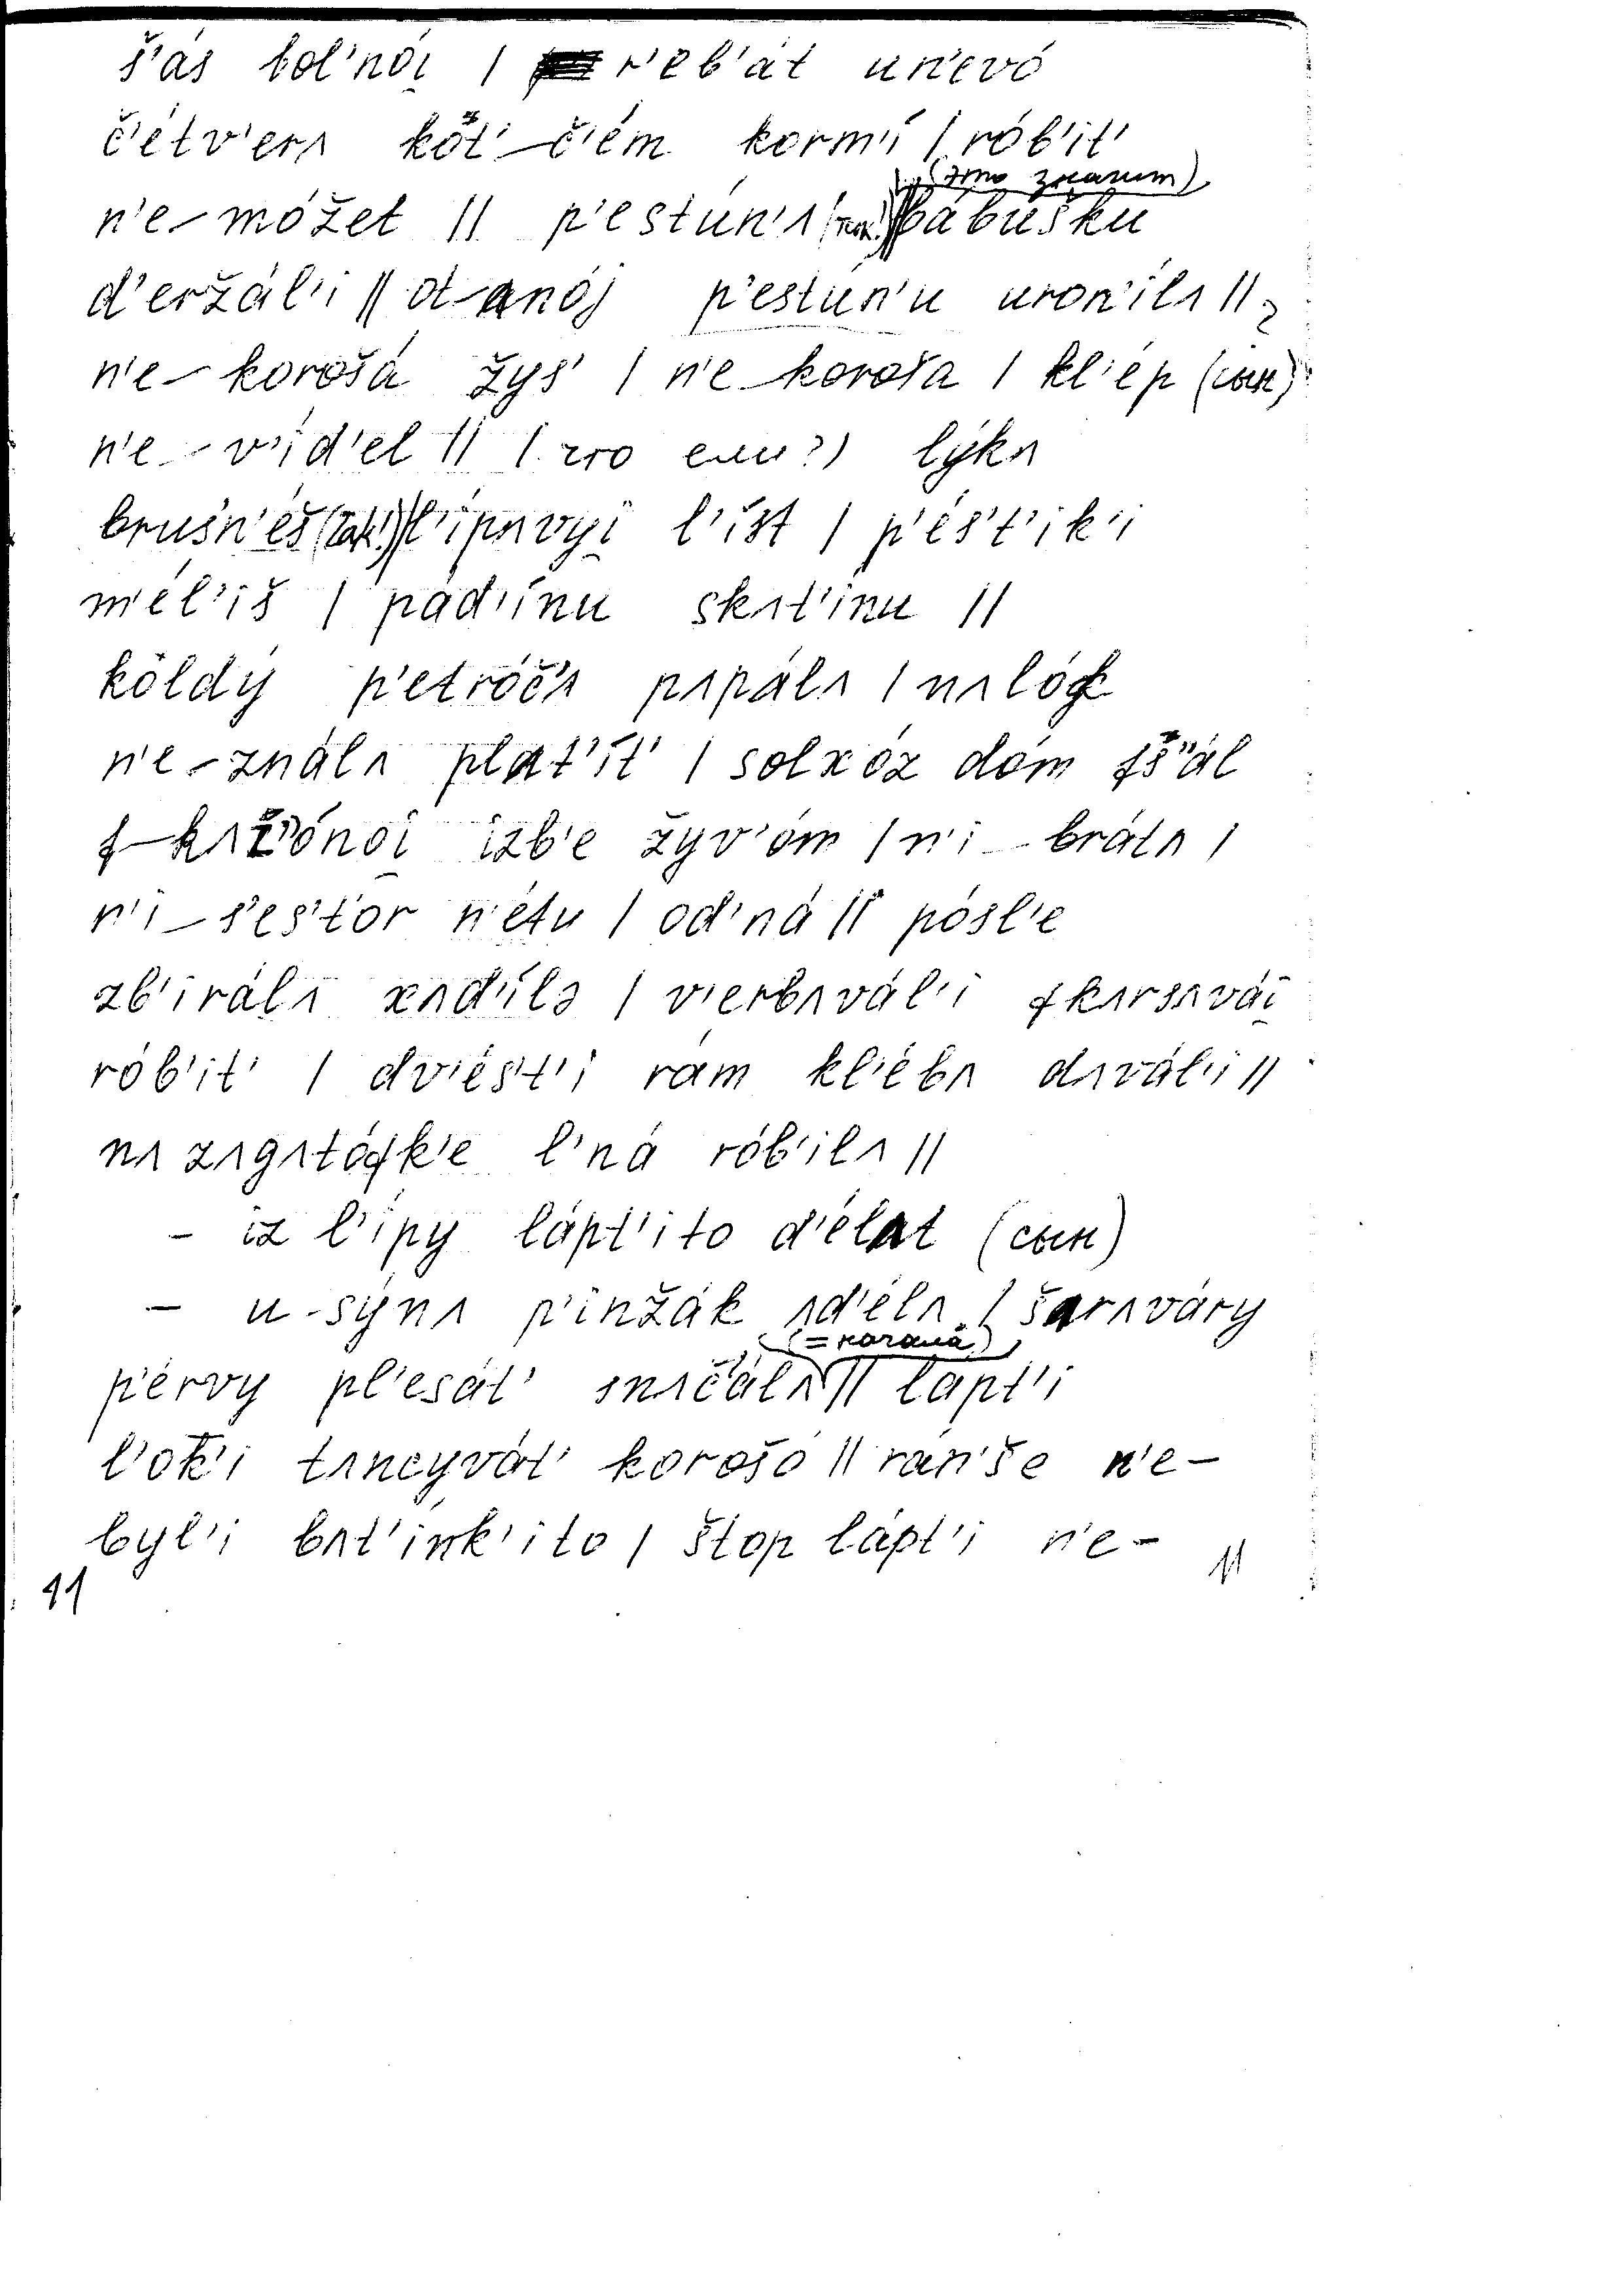 š'ás bol'nój | r'eb'át un'evó
č'étv'erʌ köt'‿č'ém korm'í | rób'it'
(это значит)
n'e‿móžet || p'estún'ʌ (так!) bábušku
d'eržál'i || ot‿anój p'estún'u uron'ílʌ ||
n'e‿korošá žys' | n'e‿koroša | kl'ép (сын)
n'e‿v'íd'el || (что ели?) lýkʌ
brus'n'éš (так!) l'ípʌvyi̯ l'íst | p'és't'ik'i
m'él'iš | pád'ínu skʌt'ínu ||
köldý p'etróč'ʌ pʌpálʌ | nʌlók
n'e‿ználʌ plat'ít' | solxóz dóm fš''ál
f‿kʌž'ónoi̯ izb'e žyv'óm | n'i‿brátʌ |
n'i‿s'es't'or n'étu | od'ná || pósl'e
zb'irálʌ xʌd'ílə | v'erbʌvál'i fkʌrsʌvái̯
rób'it' | dv'és't'i rám kl'ébʌ dʌvál'i ||
nʌ zʌgʌtófk'e l'ná rób'ilʌ ||
– iz l'ípy lápt'ito d'élat (сын)
– u‿sýnʌ p'inžák ʌd'élʌ | šarʌváry
(= начала)
p'érvy pl'esát' snʌč'álʌ || lápt'i
l'ok'i tʌncyvát' korošó || rán'še n'e-
byl'i bʌt'ínk'ito | štop lápt'i n'e-
11 11